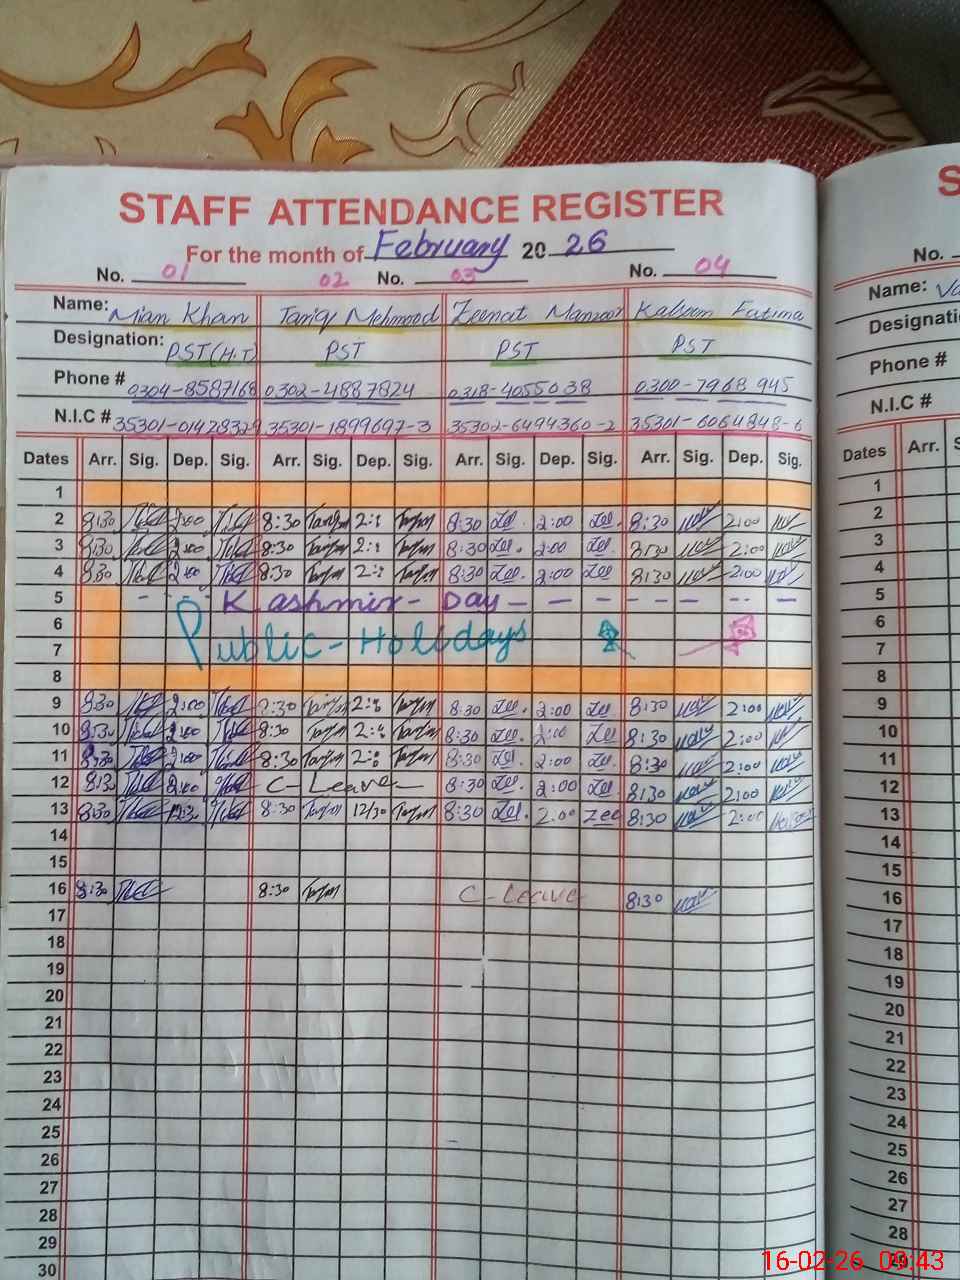 STAFF ATTENDANCE REGISTER
For the month of February 20 26
No. 01 02 No. 03 No. 04
Name: Mian Khan Tariq Mehmood Zeenat Manzoor Kalsoom Fatima
Designation: PST (H.T) PST PST PST
Phone # 0304-8587168 0302-4887824 0318-4055038 0300-7968945
N.I.C # 35301-0142832 35301-1899697-3 35302-6494360-2 35301-6064848-6
Dates Arr. Sig. Dep. Sig. Arr. Sig. Dep. Sig. Arr. Sig. Dep. Sig. Arr. Sig. Dep. Sig.
1
2 8:30 2:00 8:30 8:30 Zee. 2:00 Zee. 8:30 2:00
3 8:30 2:00 8:30 8:30 Zee. 2:00 Zee. 8:30 2:00
4 8:30 2:00 8:30 8:30 Zee. 2:00 Zee 8:30 2:00
5 - - - Kashmir - Day - - - - - - -
6
7 Public - Holidays
8
9 8:30 2:00 8:30 8:30 Zee. 2:00 Zee 8:30 2:00
10 8:30 2:00 8:30 8:30 Zee. 2:00 Zee 8:30 2:00
11 8:30 2:00 8:30 8:30 Zee. 2:00 Zee. 8:30 2:00
12 8:30 2:00 C - Leave - 8:30 Zee. 2:00 Zee. 8:30 2:00
13 8:30 12:30 8:30 12/30 8:30 Zee. 2:00 Zee 8:30 2:00
14
15
16 8:30 8:30 C - Leave 8:30
17
18
19
20
21
22
23
24
25
26
27
28
29
30
S
No.
Name:
Designati
Phone #
N.I.C #
Dates Arr. S
1
2
3
4
5
6
7
8
9
10
11
12
13
14
15
16
17
18
19
20
21
22
23
24
25
26
27
28
16-02-26 09:43